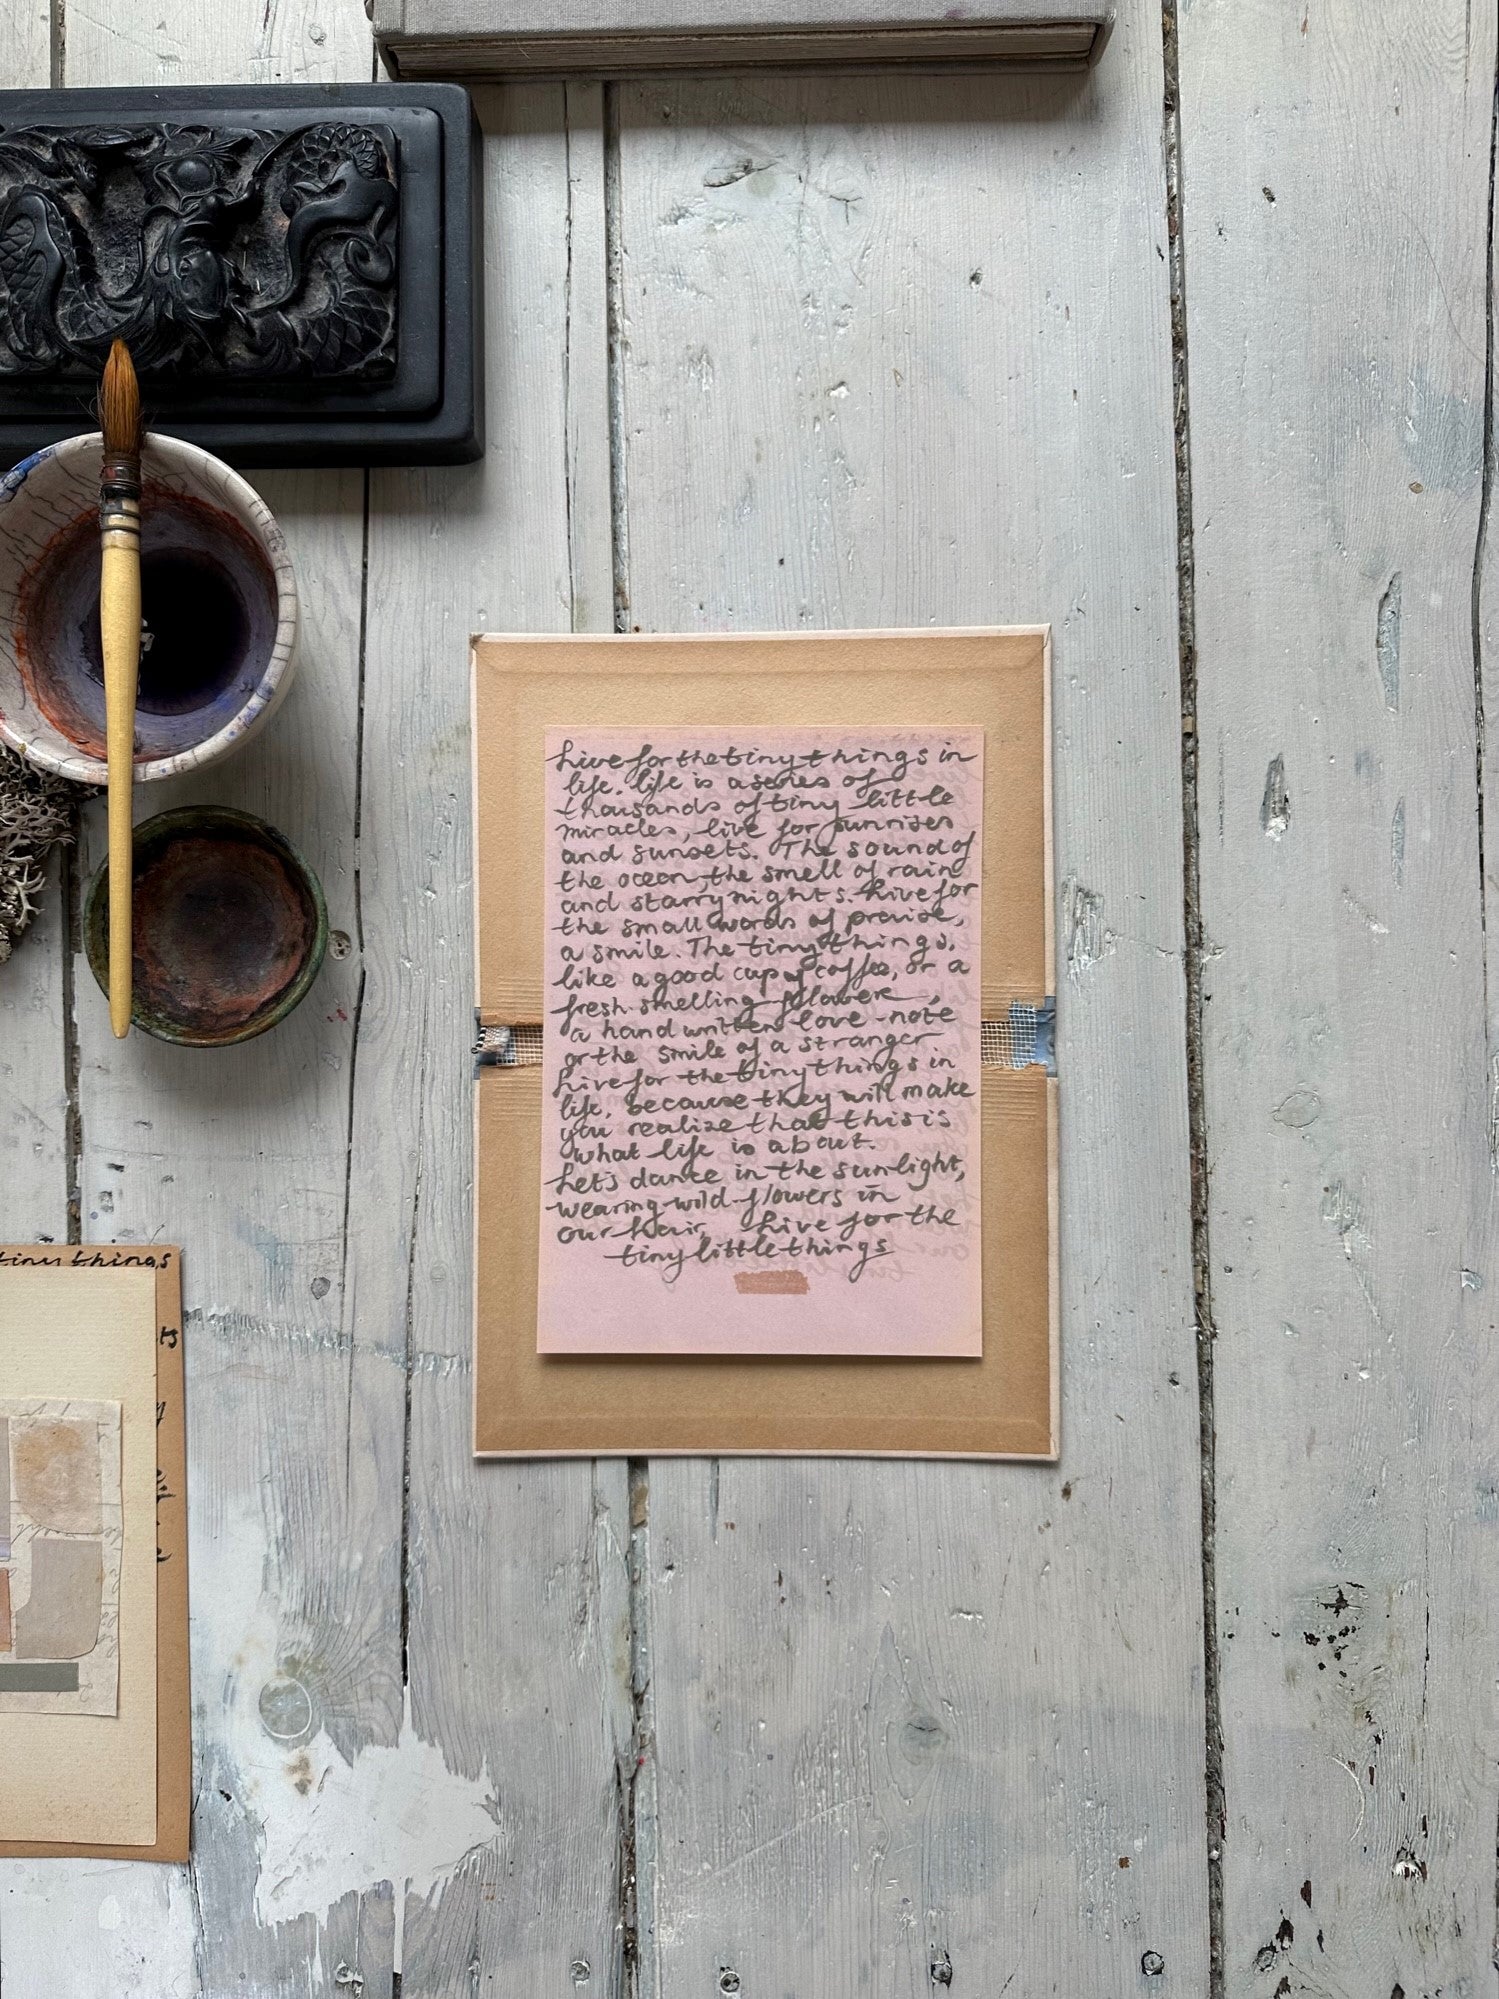 Live for the tiny things in
life. life is a series of
thousands of tiny little
miracles, live for sunrises
and sunsets. The sound of
the ocean, the smell of rain
and starry nights. Live for
the small words of praise,
a smile. The tiny things,
like a good cup of coffee, or a
fresh smelling flower,
a hand written love-note
or the smile of a stranger.
Live for the tiny things in
life, because they will make
you realize that this is
what life is about.
Let's dance in the sunlight,
wearing wild flowers in
our hair, Live for the
tiny little things
tiny things